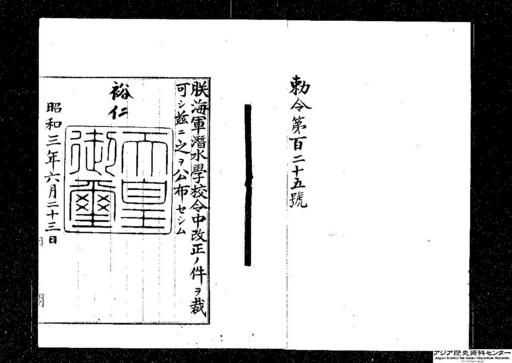 勅令第百二十五號
朕海軍潛水學校令中改正ノ件ヲ裁
可シ茲ニ之ヲ公布セシム
裕仁
天皇
御璽
昭和三年六月二十三日
アジア歴史資料センター
Japan Center for Asian Historical Records